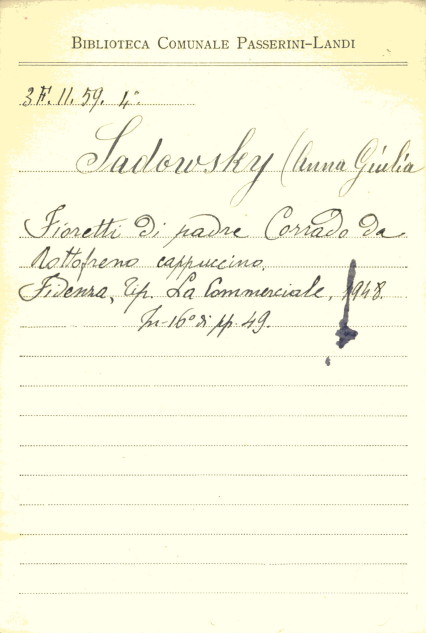 BIBLIOTECA COMUNALE PASSERINI-LANDI
3F.11.59. 4°
Sadowsky (Anna Giulia
Fioretti di padre Corrado da
Rottofreno cappuccino.
Fidenza, Tip. La Commerciale, 1948.
In-16° di pp. 49.